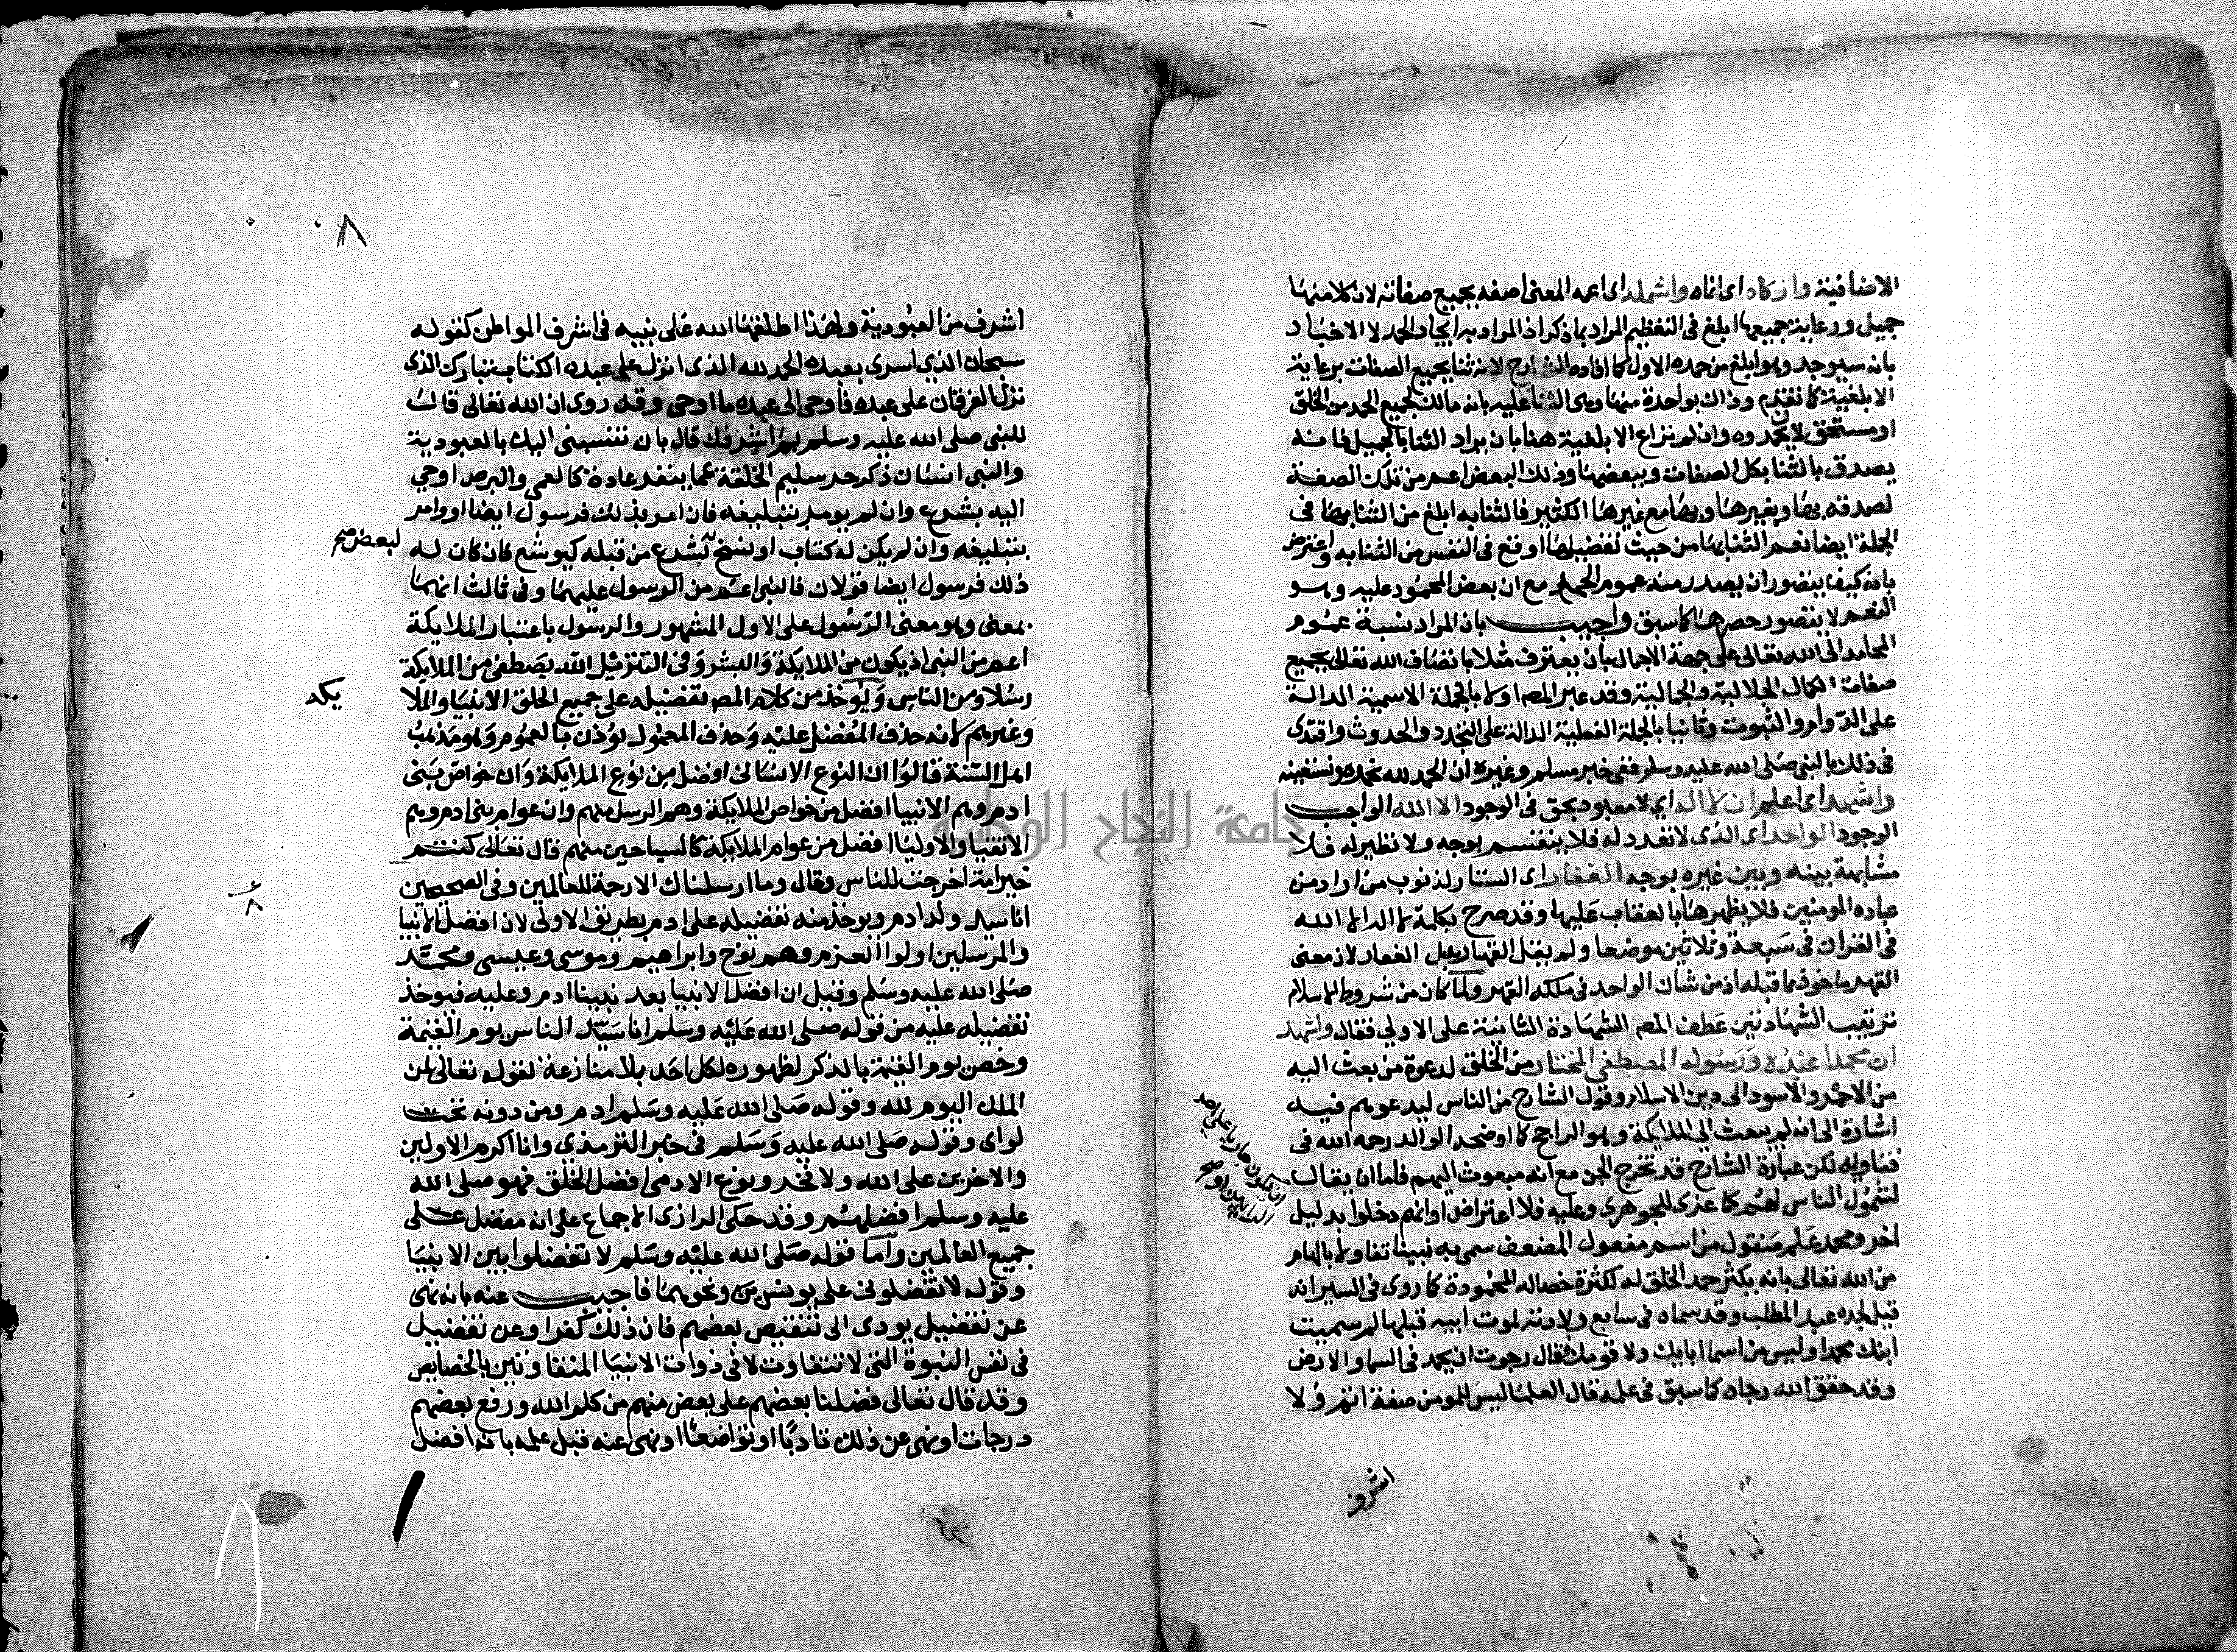 الاضافية وازكاه اى انماه واشمله اى اعمه المعنى اصفه بجميع صفاته لان كلا منها
جميل ورعاية جميعها ابلغ فى التعظيم المراد بما ذكر اذ المراد به ايجاد الحمد لا الاخبار
بانه سيوجد وهو ابلغ من حمده الاول كما افاده الشارح لانه ثنا بجميع الصفات برعاية
الابلغية كما تقدم وذاك بواحدة منها وهى الثنا عليه بانه مالك لجميع الحمد من الخلق
او مستحق لان يحمدوه وان لم تراع الابلغية هنا بان يراد الثنا بالجميل فانه
يصدق بالثنا بكل الصفات وببعضها وذلك البعض اعم من تلك الصفة
لصدقه بها وبغيرها وبها مع غيرها الكثير فالثنا به ابلغ من الثنا بها فى
الجملة ايضا نعم الثنا بها من حيث تفضيلها اوقع فى النفس من الثنا به واعترض
بانه كيف يتصور ان يصدر منه عموم الحمد مع ان بعض المحمود عليه وهو
النعم لا يتصور حصرها كما سبق واجيب بان المراد نسبة عموم
المحامد الى الله تعالى على جهة الاجمال بان يعترف مثلا باتصاف الله تعالى بجميع
صفات الكمال الجلالية والجمالية وقد عبر المص اولا بالجملة الاسمية الدالة
على الدوام والثبوت وثانيا بالجملة الفعلية الدالة على التجدد والحدوث واقتدى
فى ذلك بالنبى صلى الله عليه وسلم ففى خبر مسلم وغيره ان الحمد لله نحمده ونستعينه
واشهد اى اعلم ان لا اله اى لا معبود بحق فى الوجود الا الله الواجب
الوجود الواحد اى الذى لا تعدد له فلا ينقسم بوجه ولا نظير له فلا
مشابهة بينه وبين غيره بوجه الغفار اى الستار لذنوب من اراد من
عباده المومنين فلا يظهرها بالعقاب عليها وقد صرح بكلمة لا اله الا الله
فى القران فى سبعة وثلاثين موضعا ولم يقل القهار بدل الغفار لان معنى
القهر ماخوذ مما قبله اذ من شان الواحد فى ملكه القهر ولما كان من شروط الاسلام
ترتيب الشهادتين عطف المص الشهادة الثانية على الاولى فقال واشهد
ان محمدا عبده ورسوله المصطفى المختار من الخلق لدعوة من بعث اليه
من الاحمر والاسود الى دين الاسلام وقول الشارح من الناس ليدعوهم فيه
اشارة الى انه لم يبعث الى الملايكة وهو الراجح كما اوضحه الوالد رحمه الله فى
فتاويه لكن عبارة الشارح قد تخرج الجن مع انه مبعوث اليهم فاما ان يقال
لشمول الناس لهم كما عزى للجوهرى وعليه فلا اعتراض او انهم دخلوا بدليل
اخر ومحمد علم منقول من اسم مفعول المضعف سمى به نبينا تفاولا بالهام
من الله تعالى بانه يكثر حمد الخلق له لكثرة خصاله المحمودة كما روى فى السير انه
قيل لجده عبد المطلب وقد سماه فى سابع ولادته لموت ابيه قبلها لم سميت
ابنك محمدا وليس من اسما ابايك ولا قومك فقال رجوت ان يحمد فى السما والارض
وقد حقق الله رجاه كما سبق فى علمه قال العلما ليس للمومن صفة اتم ولا
اشرف
٨
اشرف من العبودية ولهذا اطلقها الله على نبيه فى اشرف المواطن كقوله
سبحان الذى اسرى بعبده الحمد لله الذى انزل على عبده الكتاب تبارك الذى
نزل الفرقان على عبده فاوحى الى عبده ما اوحى وقد روى ان الله تعالى قال
للنبى صلى الله عليه وسلم بم اشرفك قال بان تنسبنى اليك بالعبودية
والنبى انسان ذكر حر سليم الخلقة عما ينفر عادة كالعمى والبرص اوحي
اليه بشرع وان لم يومر بتبليغه فان امر بذلك فرسول ايضا او وامر
بتبليغه وان لم يكن له كتاب او نسخ لشرع من قبله كيوشع فان كان له
لبعض صح
ذلك فرسول ايضا قولان فالنبى اعم من الرسول عليهما وفى ثالث انهما
بمعنى وهو معنى الرسول على الاول المشهور والرسول باعتبار الملايكة
اعم من النبى اذ يكون من الملايكة والبشر وفى التنزيل الله يصطفى من الملايكة
رسلا ومن الناس ويوخذ من كلام المص تفضيله على جميع الخلق الانبيا والملا
يكه
وغيرهم لانه حذف المفضل عليه وحذف المعمول يوذن بالعموم وهو مذهب
اهل السنة قالوا ان النوع الانسانى افضل من نوع الملايكة وان خواص بنى
ادم وهم الانبيا افضل من خواص الملايكة وهم الرسل منهم وان عوام بنى ادم وهم
الاتقيا والاوليا افضل من عوام الملايكة كالسياحين منهم قال تعالى كنتم
خير امة اخرجت للناس وقال وما ارسلناك الا رحمة للعالمين وفى الصحيحين
انا سيد ولد ادم ويوخذ منه تفضيله على ادم بطريق الاولى لان افضل الانبيا
والمرسلين اولوا العزم وهم نوح وابراهيم وموسى وعيسى ومحمد
صلى الله عليه وسلم وقيل ان افضل الانبيا بعد نبينا ادم وعليه فيوخذ
تفضيله عليه من قوله صلى الله عليه وسلم انا سيد الناس يوم القيمة
وخص يوم القيمة بالذكر لظهوره لكل احد بلا منازعة لقوله تعالى لمن
الملك اليوم لله وقوله صلى الله عليه وسلم ادم ومن دونه تحت
لواى وقوله صلى الله عليه وسلم فى خبر الترمذي وانا اكرم الاولين
والاخرين على الله ولا فخر ونوع الادمى افضل الخلق فهو صلى الله
عليه وسلم افضلهم وقد حكى الرازى الاجماع على انه مفضل على
جميع العالمين واما قوله صلى الله عليه وسلم لا تفضلوا بين الانبيا
وقوله لا تفضلونى على يونس ونحوهما فاجيب عنه بانه نهى
عن تفضيل يودى الى تنقيص بعضهم فان ذلك كفر او عن تفضيل
فى نفس النبوة التى لا تتفاوت لا فى ذوات الانبيا المتفاوتين بالخصايص
وقد قال تعالى فضلنا بعضهم على بعض منهم من كلم الله ورفع بعضهم
درجات او نهى عن ذلك تادبا او تواضعا او نهى عنه قبل علمه بانه افضل
جامعة النجاح الوطنية